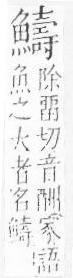 鱨
除留切音酬家語
魚之大者名鱨